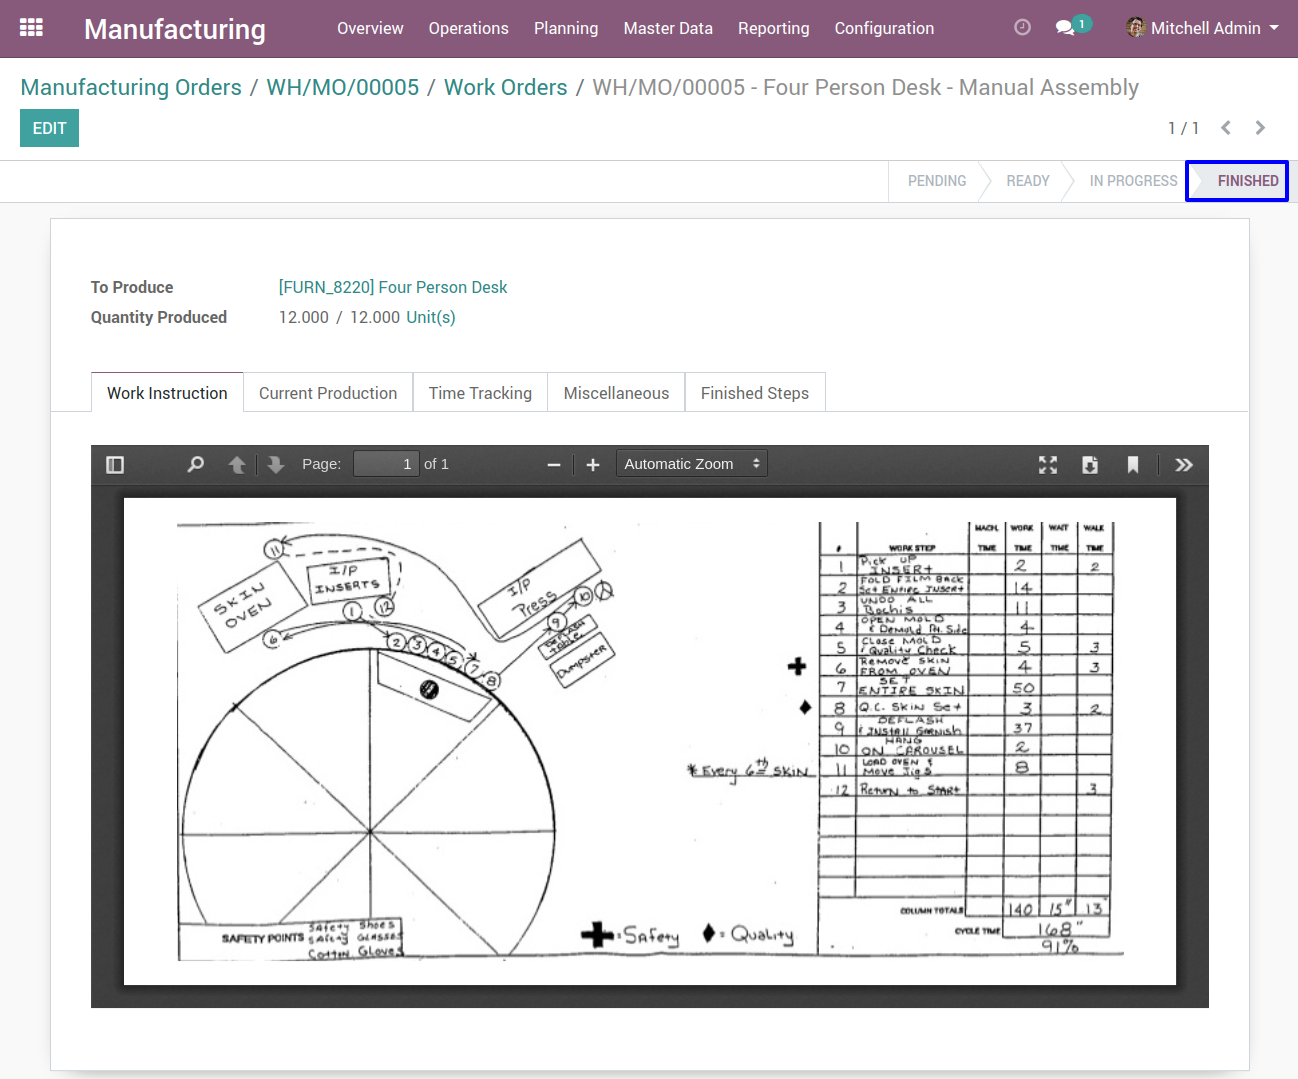 Manufacturing Overview Operations Planning Master Data Reporting Configuration 1 Mitchell Admin
Manufacturing Orders / WH/MO/00005 / Work Orders / WH/MO/00005 - Four Person Desk - Manual Assembly
EDIT 1 / 1
PENDING READY IN PROGRESS FINISHED
To Produce [FURN_8220] Four Person Desk
Quantity Produced 12.000 / 12.000 Unit(s)
Work Instruction Current Production Time Tracking Miscellaneous Finished Steps
Page: 1 of 1 Automatic Zoom
11
SKIN OVEN
I/P INSERTS
I/P Press
1 12
6 2 3 4 5 7 8 9 10
DEFLASH table
DUMPSTER
# WORK STEP MACH. TIME WORK TIME WAIT TIME WALK TIME
1 Pick UP INSERt 2 2
2 FOLD FILM BACK Set Entire Insert 14
3 UNDO ALL 11
4 OPEN MOLD & Demold Pt. Side 4
5 Close MOLD & Quality Check 5 3
6 Remove SKIN FROM OVEN 4 3
7 SET ENTIRE SKIN 50
8 Q.C. SKIN Set 3 2
9 DEFLASH & INStAll GARNish 37
10 HANG ON CAROUSEL 2
* Every 6th SKIN 11 LOAD OVEN & Move Jigs 8
12 Return to START 3
COLUMN TOTALS 140 15" 13
CYCLE TIME 168"
91%
SAFETY POINTS SAfety Shoes
SAfety GLASSES
Cotton Gloves
= SAfety = QuALity